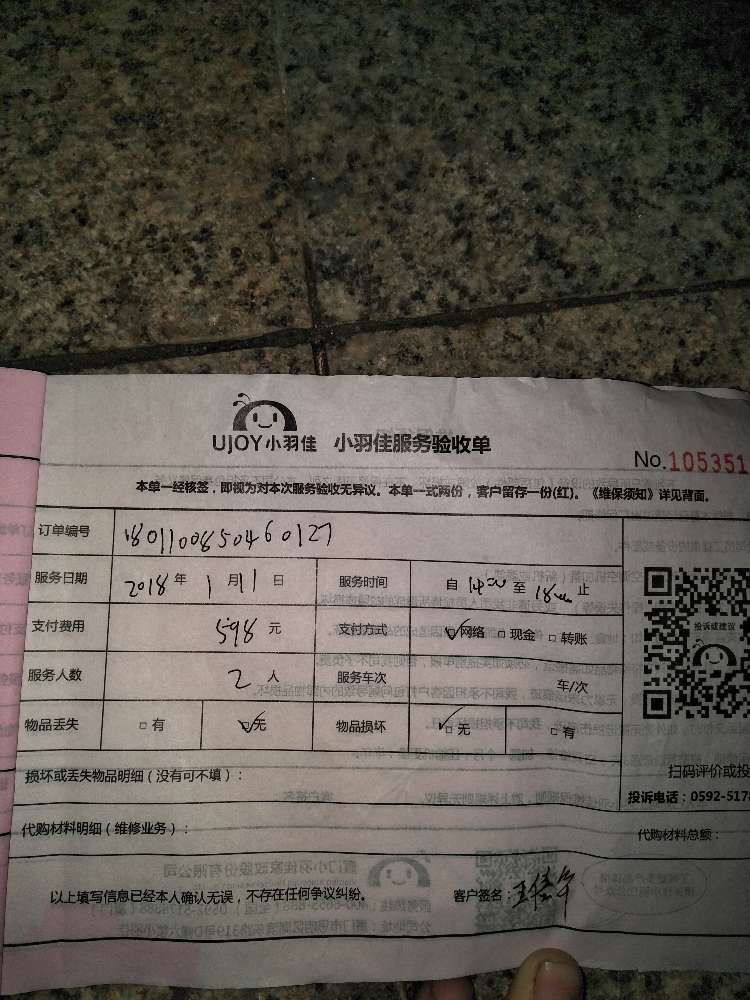 UJOY小羽佳 小羽佳服务验收单
No.105351
本单一经核签，即视为对本次服务验收无异议。本单一式两份，客户留存一份(红)。《维保须知》详见背面。
订单编号 180110085046 0127
服务日期 2018 年 1 月 11 日 服务时间 自 14:00 至 18:00 止
支付费用 598 元 支付方式 ☑网络 □现金 □转账
服务人数 2 人 服务车次 车/次
物品丢失 □有 ☑无 物品损坏 ☑无 □有
投诉或建议
损坏或丢失物品明细（没有可不填）：
扫码评价或投
投诉电话：0592-5178
代购材料明细（维修业务）：
代购材料总额：
以上填写信息已经本人确认无误，不存在任何争议纠纷。 客户签名：王